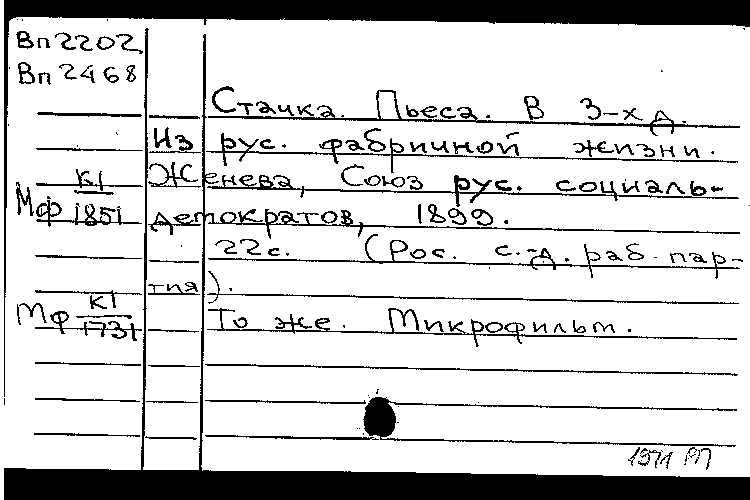 Вп2202
Вп2468
Стачка. Пьеса. В 3-х д.
Из рус. фабричной жизни.
Женева, Союз рус. социаль-
демократов, 1899.
22с. (Рос. с.-д. раб. пар-
тия).
Мф К1/1851
То же. Микрофильм.
Мф К1/1731
1971